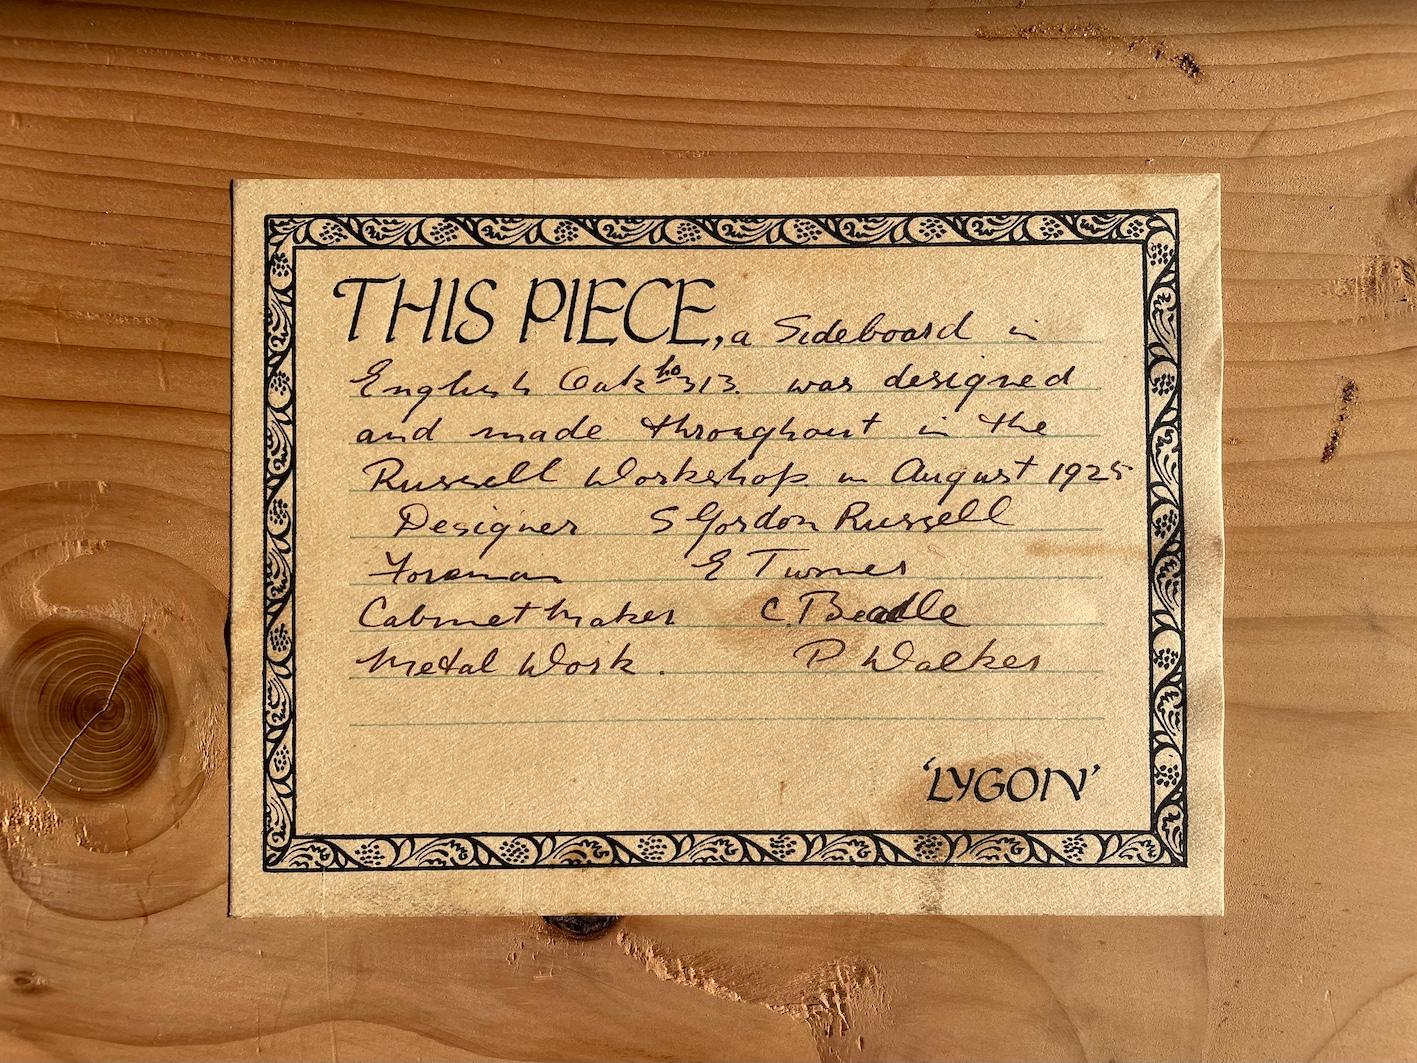 THIS PIECE, a Sideboard in
English Oak No 313. was designed
and made throughout in the
Russell Workshop in August 1925
Designer S Gordon Russell
Foreman E Turner
Cabinet Maker C. Beadle
Metal Work. P Walker
'LYGON'